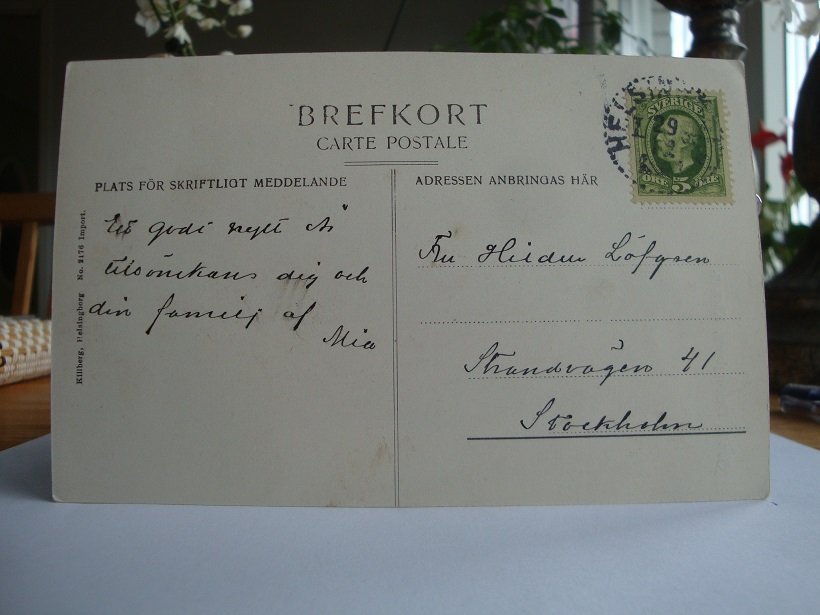 BREFKORT
CARTE POSTALE
PLATS FÖR SKRIFTLIGT MEDDELANDE
Ett godt nytt År
tillönskans dig och
din familj af
Mia
Killberg, Helsingborg No. 2176 Import.
ADRESSEN ANBRINGAS HÄR
Fru Hildur Löfgren
Strandvägen 41
Stockholm
SVERIGE
5
HELSIN
29